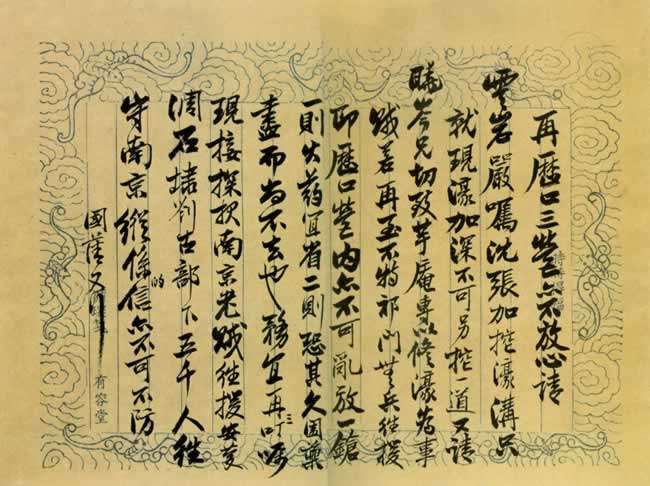 再歷口三營亦不放心請
雲岩嚴囑沈張加挖濠溝只
就現濠加深不可另挖一道又請
岑兄切致芋庵專以修濠為事
賊若再至不特祁門無兵往援
即歷口營內亦不可亂放一鎗
一則火藥宜省二則恐其久困藥
盡而尚不去也務宜再三叮囑
現接探報南京老賊往援安慶
調石埭劉古部下五千人往
守南京縱係的信亦不可不防
國藩又
有容堂